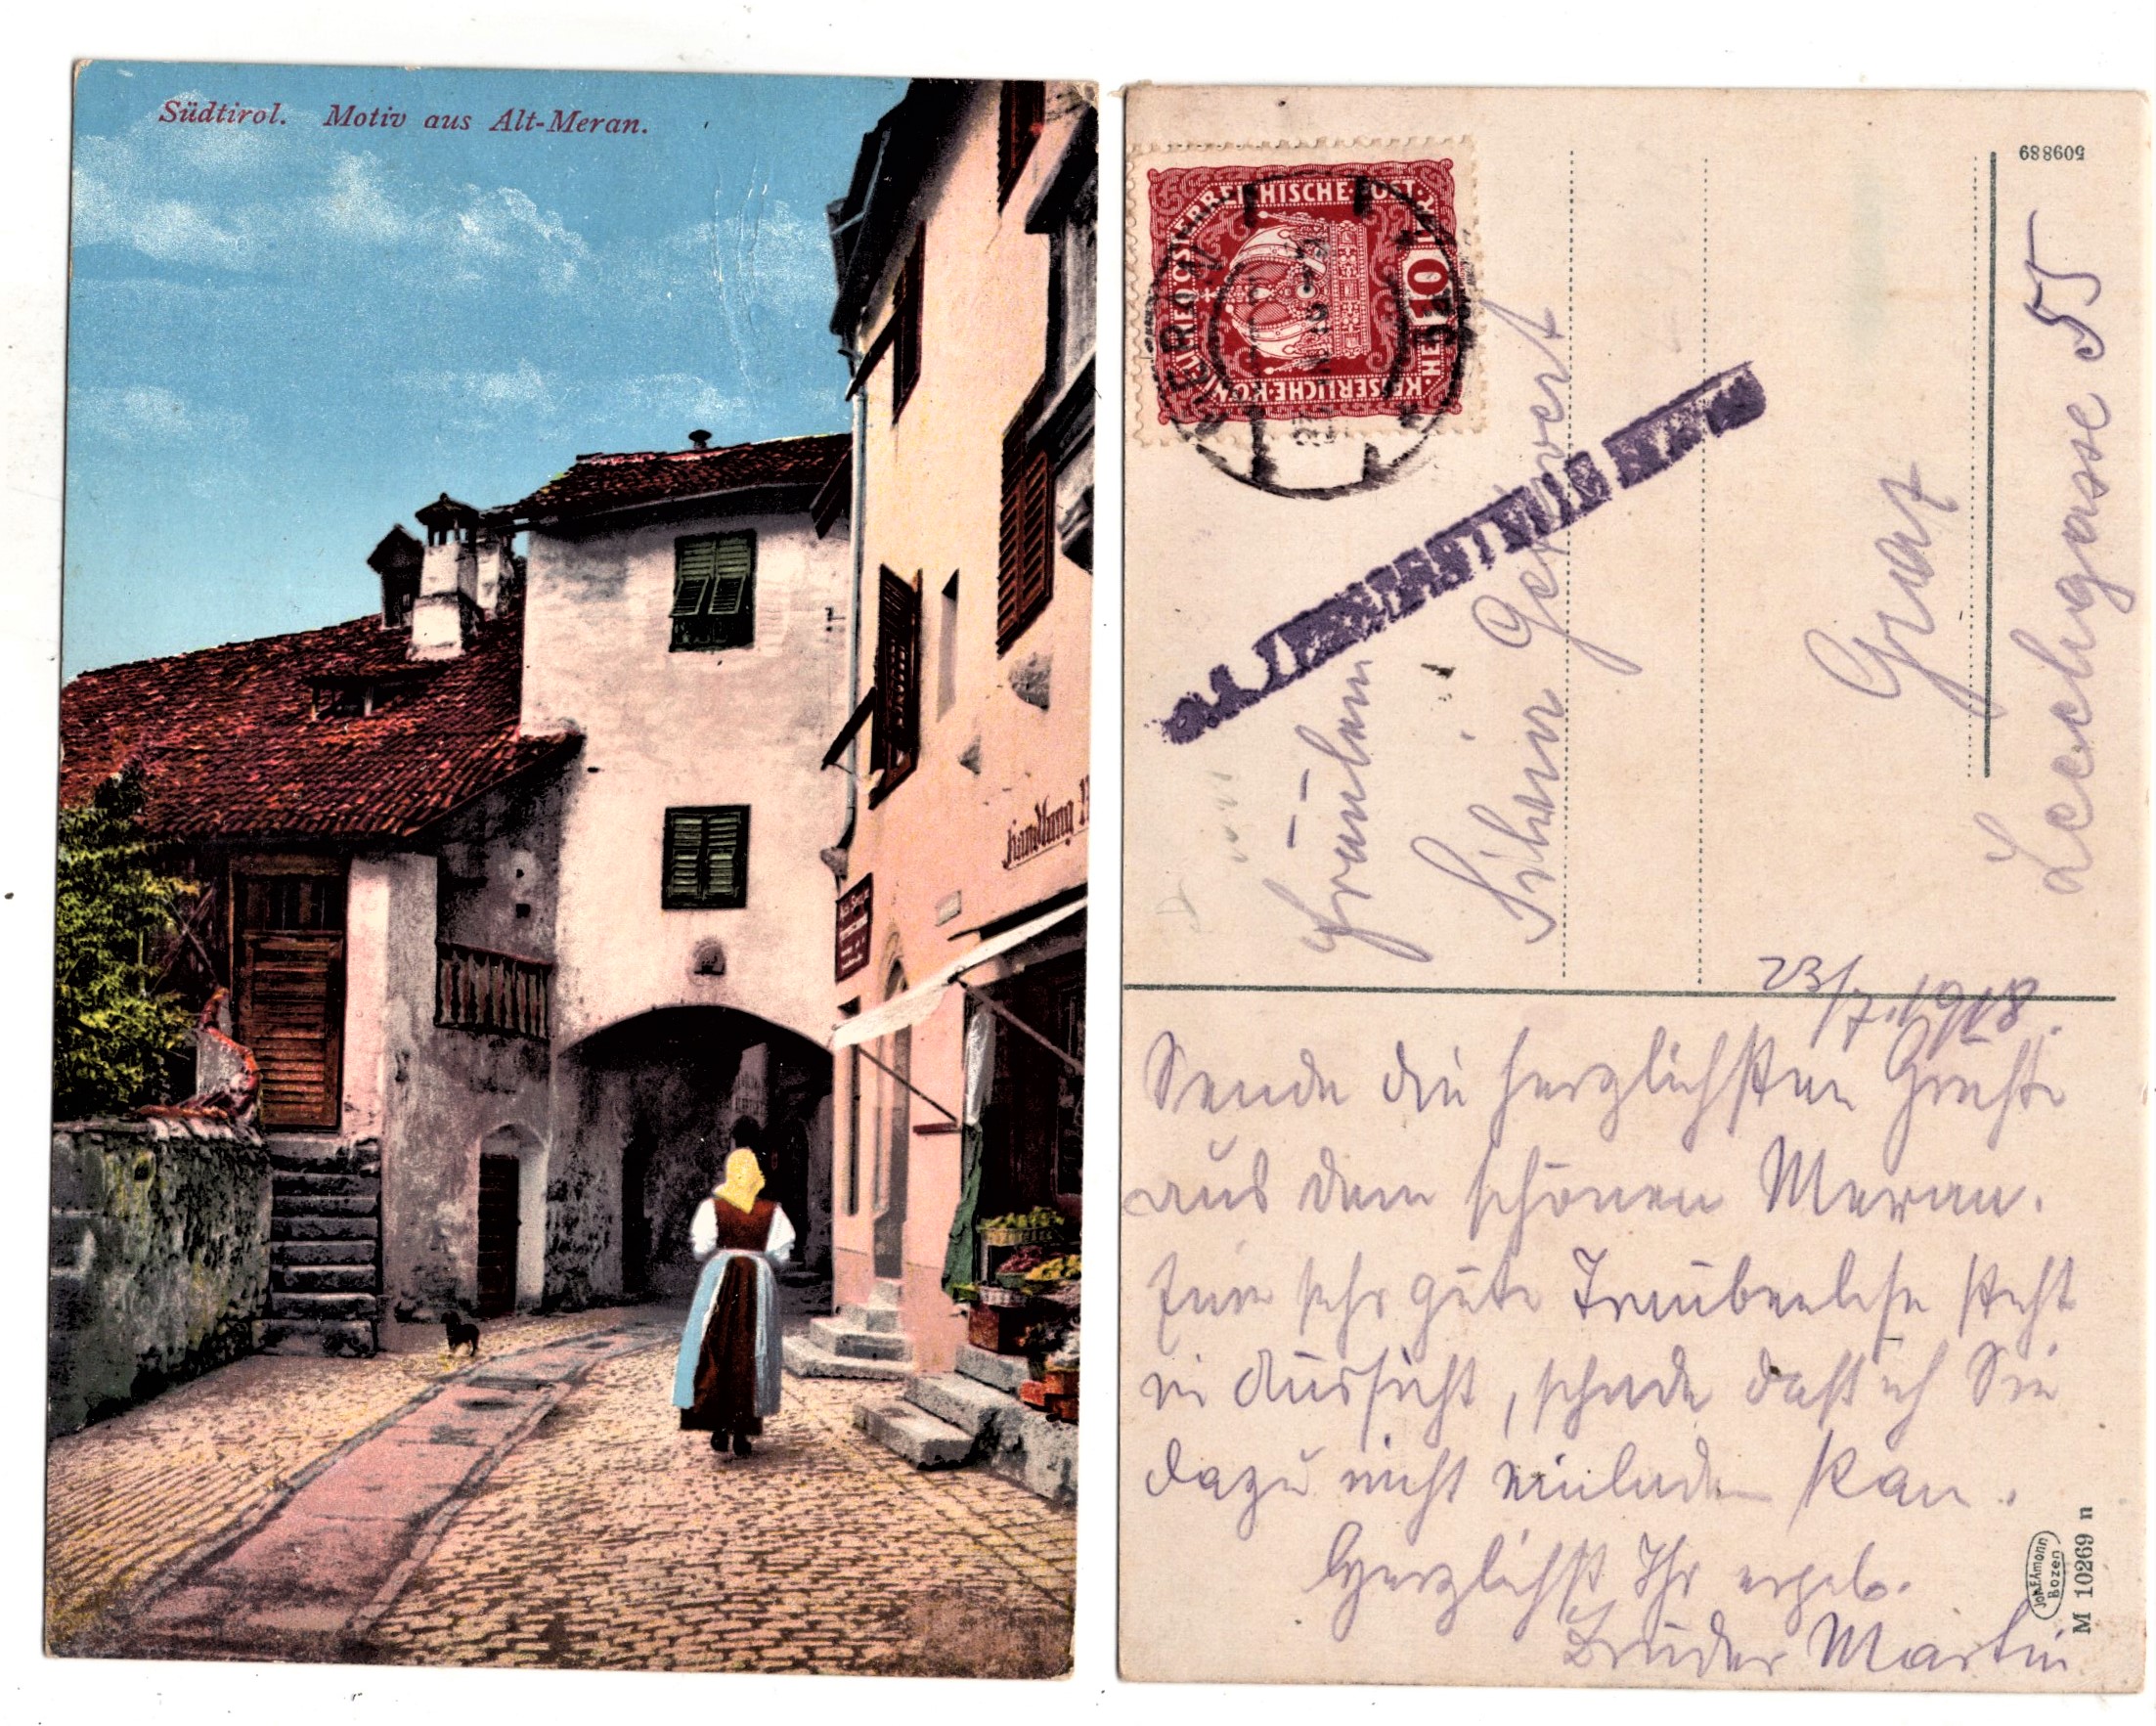 Südtirol. Motiv aus Alt-Meran.
Handlung
509889
KAISERLICHE KÖNIGLICHE ÖSTERREICHISCHE POST
10 HELLER
MERAN
Fräulein
Graz
Leechgasse 55
23/7. 1918.
Sende die herzlichsten Grüße
aus dem schönen Meran.
Eine sehr gute Traubenlese steht
in Aussicht, schade daß ich Sie
dazu nicht einladen kan.
Herzlichst Ihr ergeb.
Bruder Martin
Joh. F. Amonn
Bozen
M 10269 n